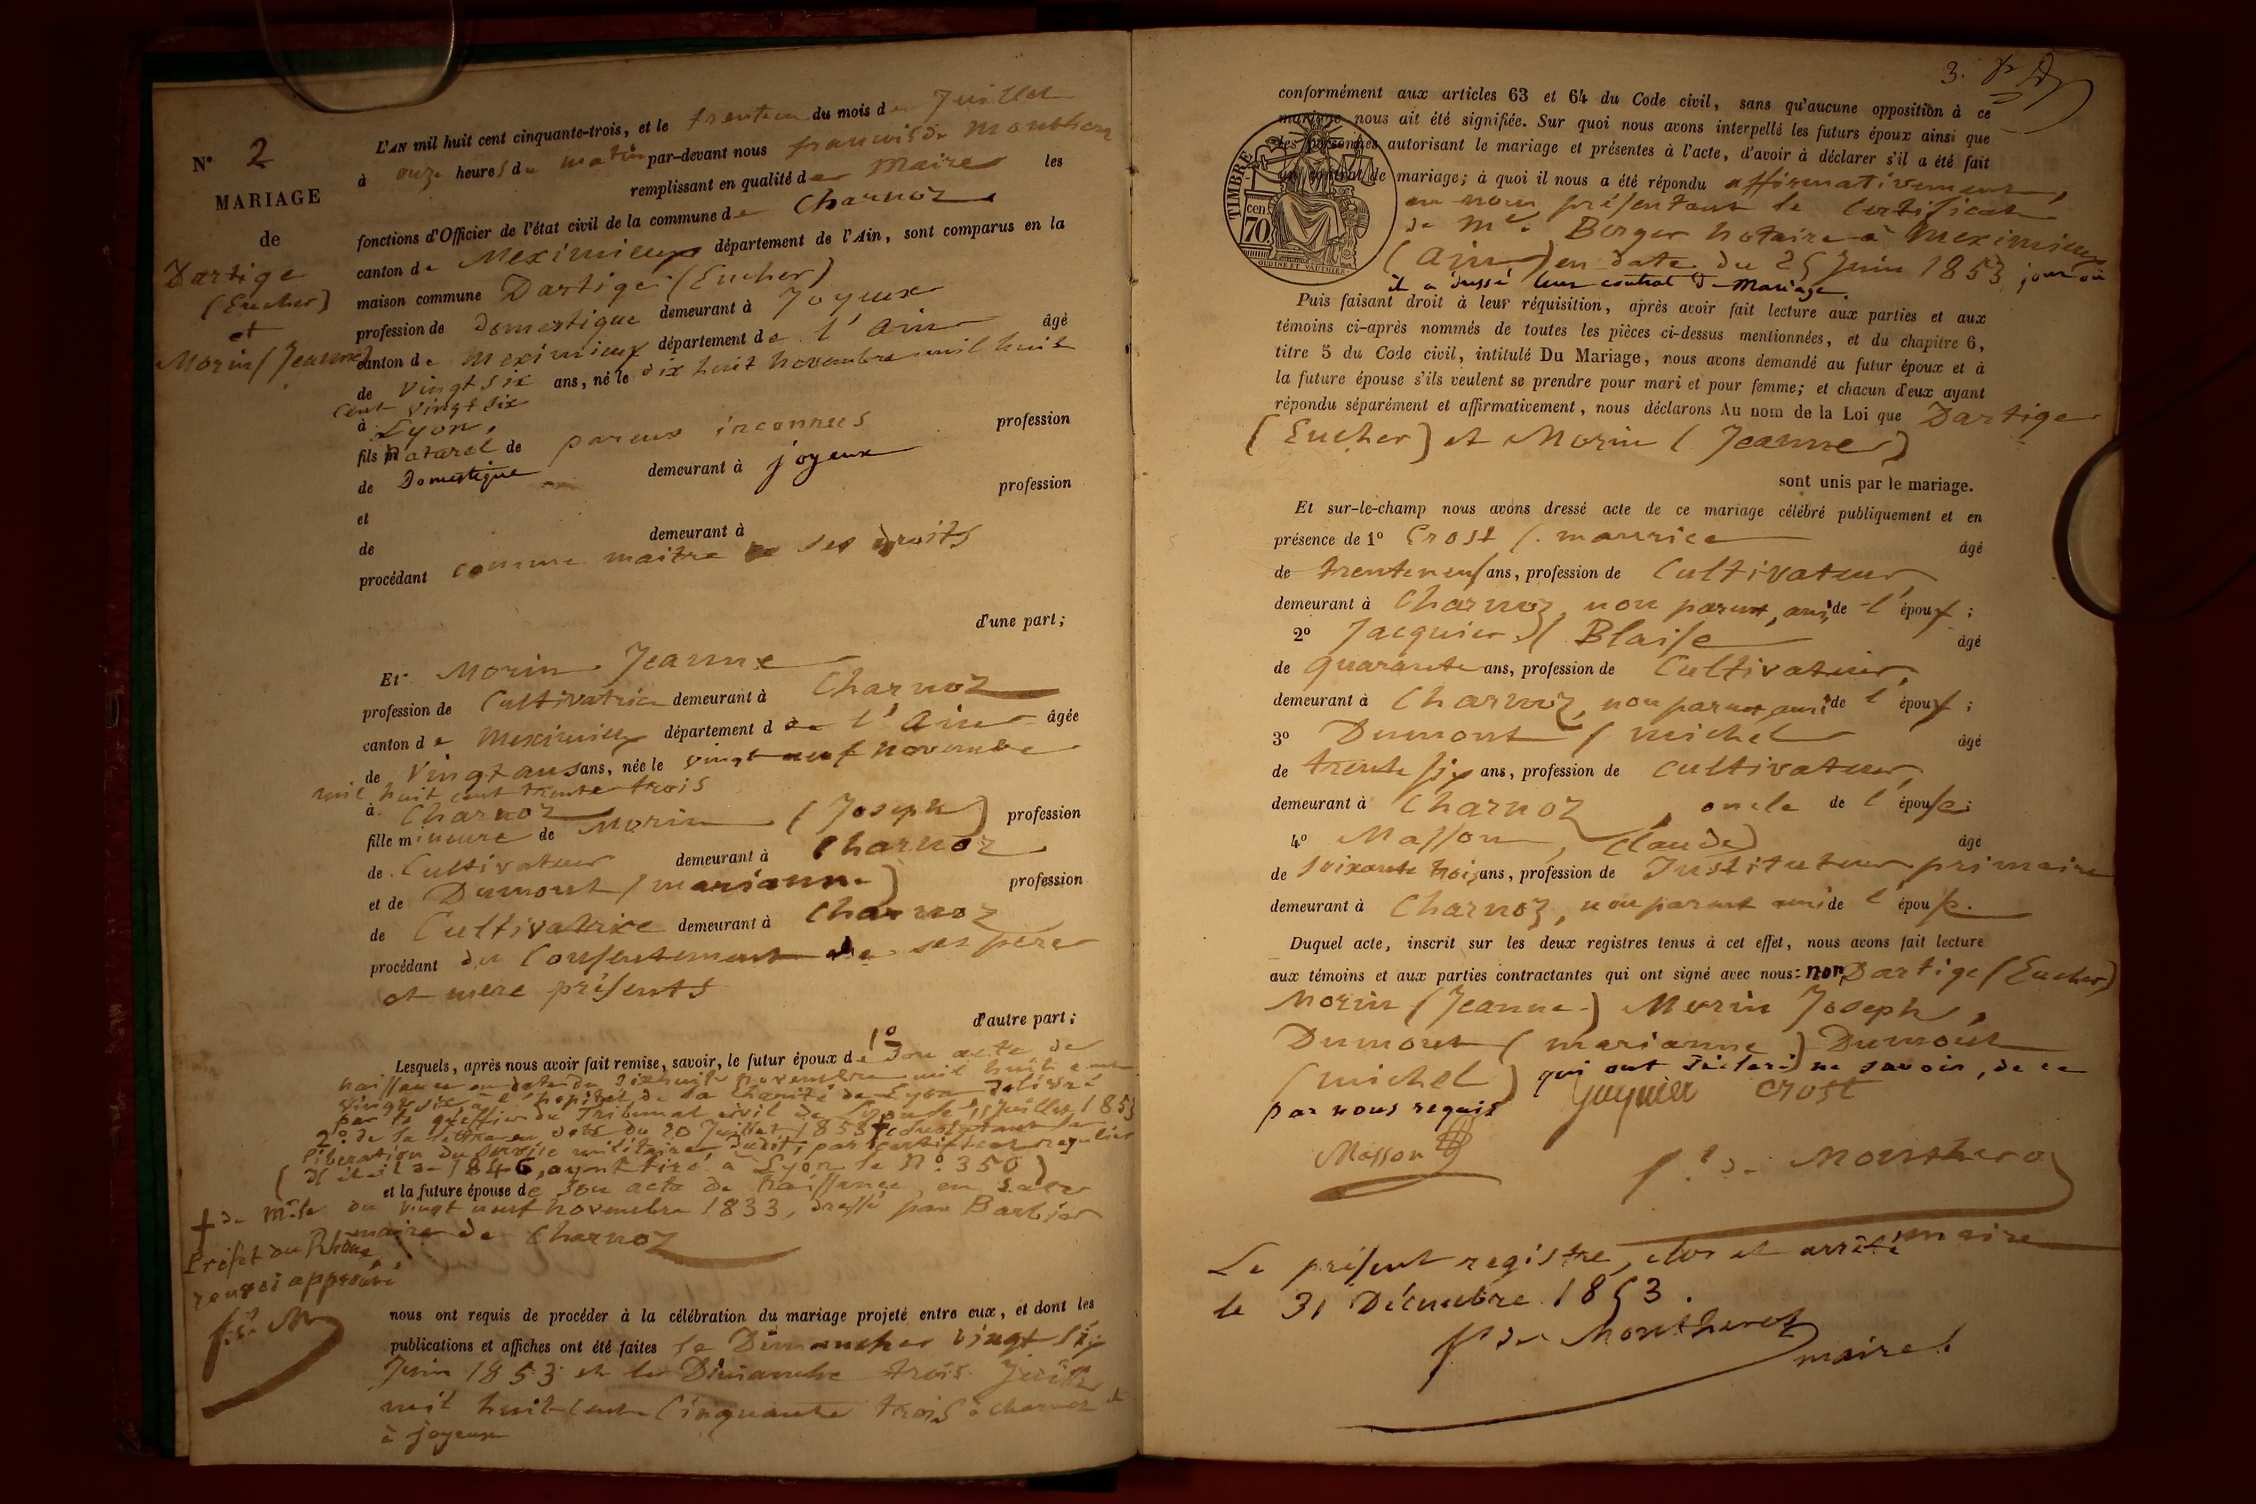 N° 2
MARIAGE
de
Dartige
(Eucher)
et
Morin (Jeanne)
L'AN mil huit cent cinquante-trois, et le trente un du mois de Juillet
à onze heures du matin par-devant nous françois de Montherot
remplissant en qualité de Maire les
fonctions d'Officier de l'état civil de la commune de Charnoz
canton de Meximieux département de l'Ain, sont comparus en la
maison commune Dartige (Eucher)
profession de domestique demeurant à Joyeux
canton de Meximieux département de l'Ain âgé
de vingt six ans, né le dix huit novembre mil huit
cent vingt six
à Lyon,
fils naturel de parens inconnus profession
de Domestique demeurant à joyeux
et profession
de demeurant à
procédant comme maître de ses droits
d'une part;
ET Morin Jeanne
profession de Cultivatrice demeurant à Charnoz
canton de Meximieux département de l'Ain âgée
de vingt ans ans, née le vingt neuf novembre
mil huit cent trente trois
à Charnoz
fille mineure de Morin (Joseph) profession
de Cultivateur demeurant à Charnoz
et de Dumont (marianne) profession
de Cultivatrice demeurant à Charnoz
procédant du Consentement de ses père
et mere présents
d'autre part;
Lesquels, après nous avoir fait remise, savoir, le futur époux de 1° Son acte de
naissance en date du dixhuit novembre mil huit cent
vingt six à l'hopital de la Charité de Lyon délivré
par le greffier du Tribunal civil de Lyon le 15 Juillet 1853
2° de la lettre en date du 20 Juillet 1853 + constatant la
libération du service militaire dudit, par certificat regulier
de 1846, ayant tiré à Lyon le N° 350)
et la future épouse de Son acte de naissance en date
du vingt neuf novembre 1833, dressé par Barbier
maire de Charnoz
+ de Mr le
Préfet du Rhône
renvoi approuvé
f. de M
nous ont requis de procéder à la célébration du mariage projeté entre eux, et dont les
publications et affiches ont été faites le Dimanche vingt six
Juin 1853 et le Dimanche trois Juillet
mil huit cent cinquante trois à charnoz et
à joyeux
3.
conformément aux articles 63 et 64 du Code civil, sans qu'aucune opposition à ce
mariage nous ait été signifiée. Sur quoi nous avons interpellé les futurs époux ainsi que
les personnes autorisant le mariage et présentes à l'acte, d'avoir à déclarer s'il a été fait
un contrat de mariage; à quoi il nous a été répondu affirmativement,
en nous présentant le certificat
de Me Berger notaire à Meximieux
(Ain) en date du 25 Juin 1853 jour où
il a dressé leur contrat de Mariage.
TIMBRE
70 cen
OUDINÉ ET VAUTHIER
Puis faisant droit à leur réquisition, après avoir fait lecture aux parties et aux
témoins ci-après nommés de toutes les pièces ci-dessus mentionnées, et du chapitre 6,
titre 5 du Code civil, intitulé Du Mariage, nous avons demandé au futur époux et à
la future épouse s'ils veulent se prendre pour mari et pour femme; et chacun d'eux ayant
répondu séparément et affirmativement, nous déclarons Au nom de la Loi que Dartige
(Eucher) et Morin (Jeanne)
sont unis par le mariage.
Et sur-le-champ nous avons dressé acte de ce mariage célébré publiquement et en
présence de 1° Crost (maurice âgé
de trente neuf ans, profession de Cultivateur
demeurant à Charnoz, non parent, ami de l'époux;
2° Jacquier (Blaise âgé
de quarante ans, profession de Cultivateur,
demeurant à Charnoz, non parent ami de l'époux;
3° Dumont (Michel âgé
de trente six ans, profession de cultivateur,
demeurant à Charnoz, oncle de l'épouse;
4° Masson, (Claude) âgé
de soixante trois ans, profession de Instituteur primaire
demeurant à Charnoz, non parent ami de l'épouse.
Duquel acte, inscrit sur les deux registres tenus à cet effet, nous avons fait lecture
aux témoins et aux parties contractantes qui ont signé avec nous: non Dartige (Eucher)
Morin (Jeanne) Morin Joseph,
Dumont (marianne) Dumont
(michel) qui ont déclaré ne savoir, de ce
par nous requis Jaquier Crost
Masson f. de Montherot
maire
Le présent registre, clos et arrêté
le 31 Décembre 1853.
f. de Montherot
maire.